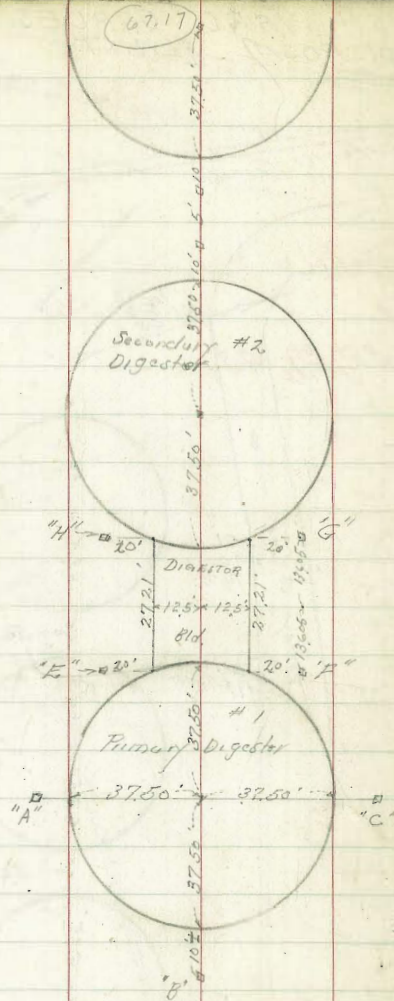 67.17
37.50'
10'
5'
10'
37.50'
Secondary #2
Digester
37.50'
"H" 20' 20' "G"
DIGESTOR
27.21' 12.5' 12.5' 27.21'
Bld.
13.605 13.605
"E" 20' 20' "F"
37.50'
#1
Primary Digester
37.50' 37.50'
"A" "C"
37.50'
10'
"B"